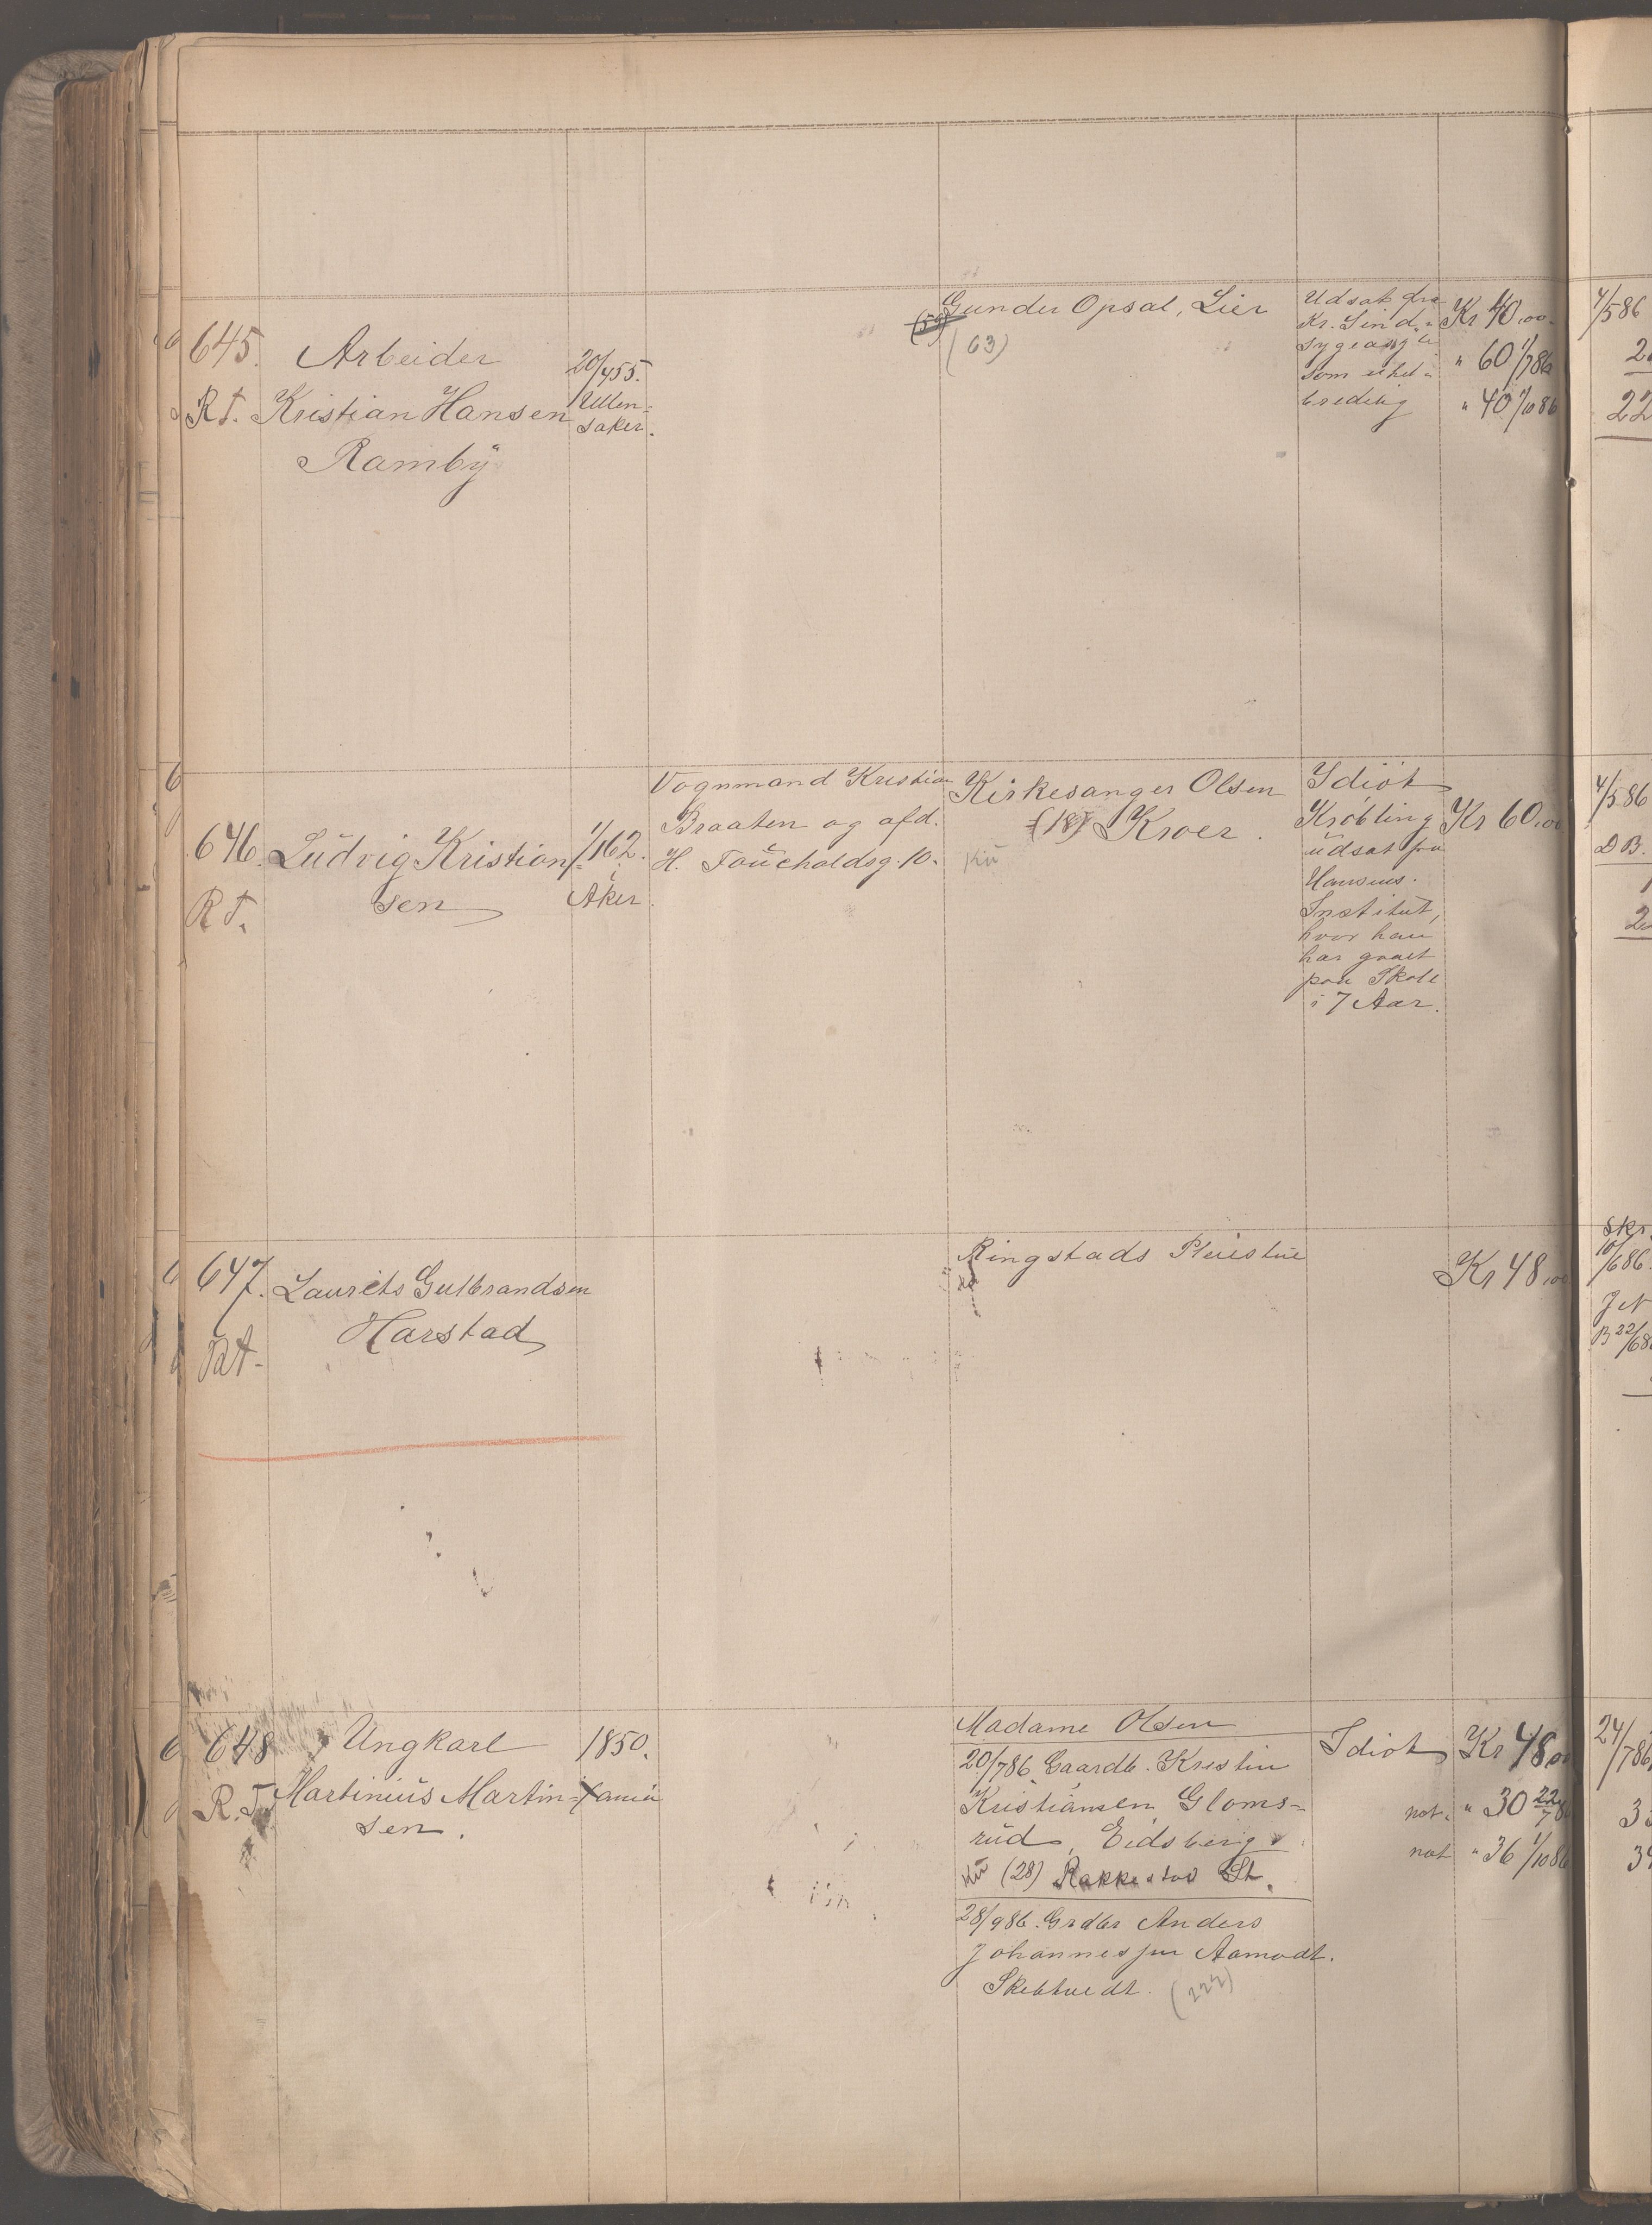 645.
R T.
Arbeider
Kristian Hansen
Ramby
20/4 55.
Ullen-
saker.
Gunder Opsal, Lier
(63)
Udsat fra
Kr. Sind-
sygeasyl
som uhel-
bredelig
Kr 40,00
" 60 1/7 86
" 40 1/10 86
4/5 86
646.
R T.
Ludvig Kristian-
sen
1/1 62.
Aker.
Vognmand Kristian
Braaten og afd.
H. Toucholdsg. 10.
Kirkesanger Olsen
(18) Kroer.
Idiot
Krøbling
udsat fra
Hansens
Institut,
hvor han
har gaaet
paa Skole
i 7 Aar.
Kr 60,00
4/5 86
D B.
647.
Laurits Gulbrandsen
Harstad
Ringstads Pleiestue
Kr 48,00
Skr.
10/6 86.
B 22/6 8
648
R. T.
Ungkarl
Martinius Martin-
sen.
1850.
Madame Olsen
20/7 86 Gaardb. Kristin
Kristiansen Gloms-
rud, Eidsberg
(28) Rakkestad St.
28/9 86. Grdbr Anders
Johannessen Aamodt.
Skebtvedt. (222)
Idiot
Kr 48,00
not. " 30 22/7 86
not " 36 1/10 86
24/7 86